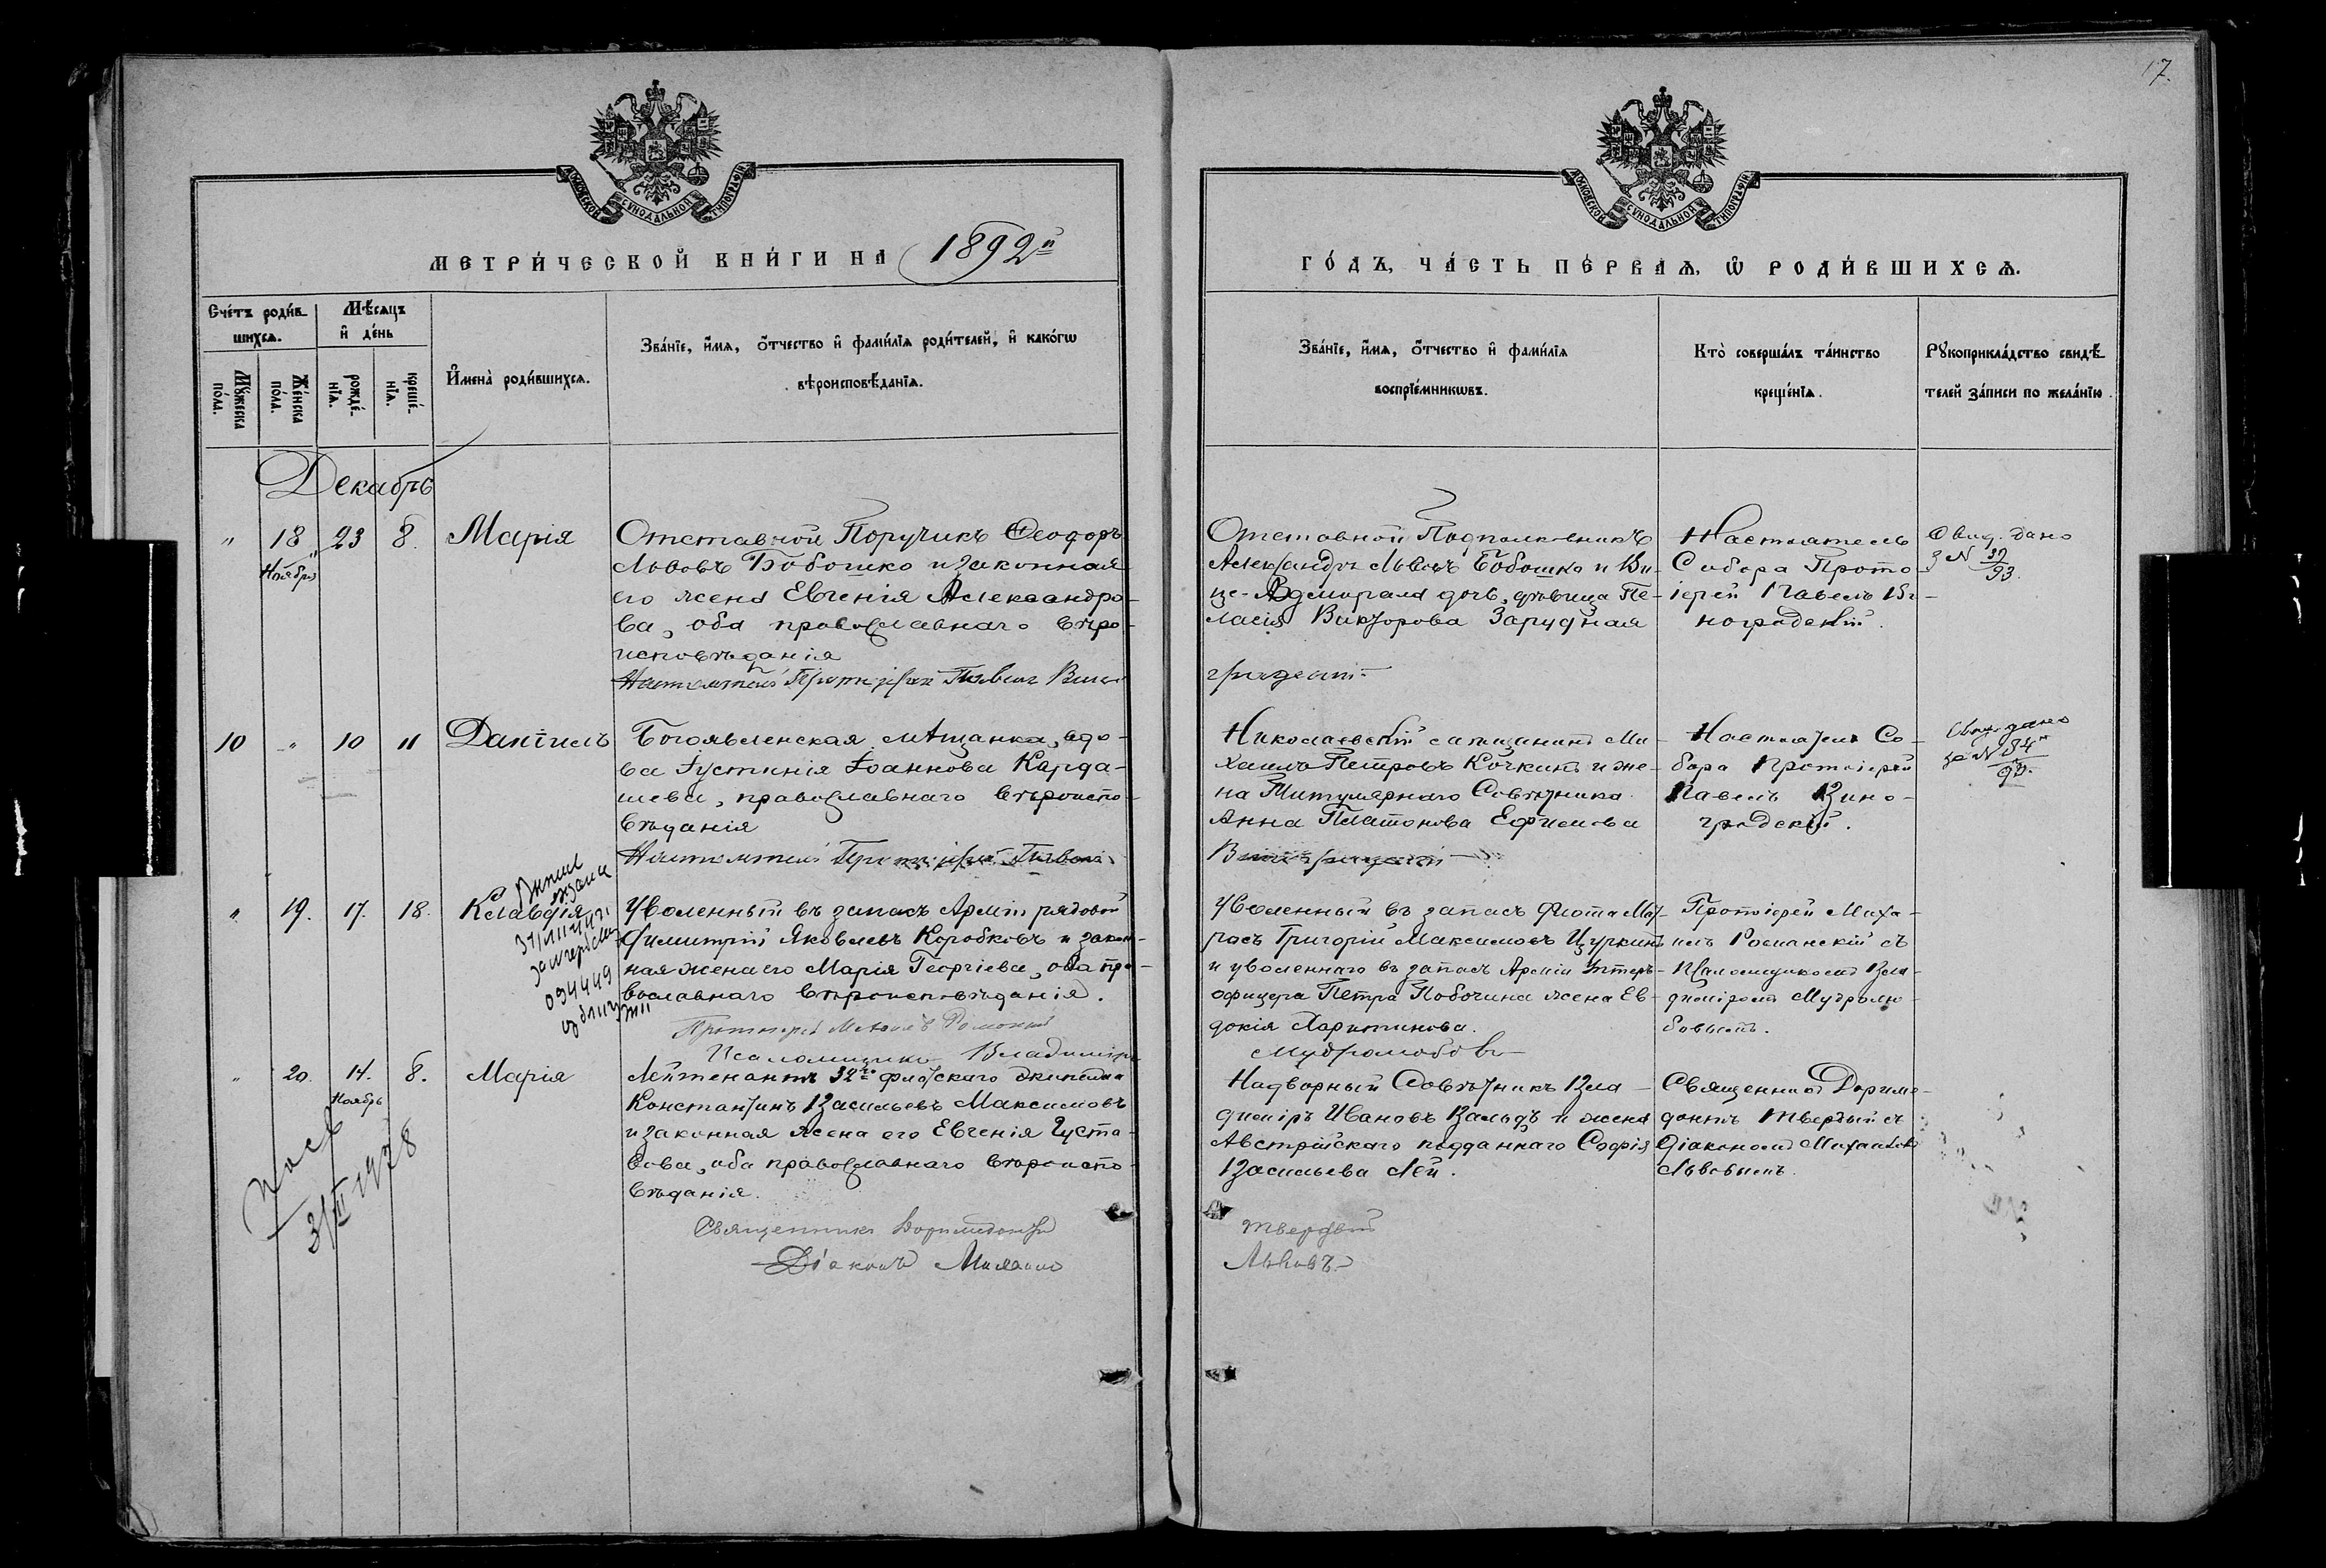 17.
МОСКОВСКОЙ СѴНОДАЛЬНОЙ ТИПОГРАФІИ
МОСКОВСКОЙ СѴНОДАЛЬНОЙ ТИПОГРАФІИ
МЕТРИ́ЧЕСКОЙ КНИ́ГИ НА 1892й
ГО́ДЪ, ЧА́СТЬ ПЕ́РВАѦ, Ѡ РОДИ́ВШИХСѦ.
Сче́тъ роди́в-
шихсѧ.
Мѣ́сѧцъ
и де́нь
Мꙋ́жеска по́ла.
Же́нска по́ла.
рожде́-нїѧ.
креще́-нїѧ.
И҆мена̀ роди́вшихсѧ.
Зва́нїе, и҆́мѧ, ѻ҆́тчество и҆ фами́лїѧ роди́телей, и҆ како́гѡ
вѣроисповѣ́данїѧ.
Зва́нїе, и҆́мѧ, ѻ҆́тчество и҆ фами́лїѧ
воспрїе́мникѡвъ.
Кто̀ соверша́лъ та́инство
креще́нїѧ.
Рꙋкоприкла́дство свидѣ́-
телей за́писи по жела́нїю.
Декабрь
" 18 23 8. Марія
Ноября
Отставной Поручикъ Ѳеодоръ
Львовъ Бобошко и законная
его жена Евгенія Александро-
ва, оба православнаго вѣро-
исповѣданія
Настоятель Протоіерей Павелъ Вино-
Отставной Подполковникъ
Александръ Львовъ Бобошко и Ви-
це-Адмирала дочь, дѣвица Пе-
лагія Викторова Зарудная
градскій
Настоятель
Собора Прото-
іерей Павелъ Ви-
ноградскій.
Свид. дано
з N 39/93.
10 " 10 11 Даніилъ
Богоявленская мѣщанка, вдо-
ва Іустинія Іоаннова Карда-
шева, православнаго вѣроиспо-
вѣданія
Настоятель Протоіерей Павелъ
Николаевскій мѣщанинъ Ми-
хаилъ Петровъ Кочкинъ и же-
на Титулярнаго Совѣтника
Анна Платонова Ефимова
Виноградскій
Настоятель Со-
бора Протоіерей
Павелъ Вино-
градскій.
Свид. дано
за N 84
" 19. 17. 18. Клавдія
094449
Уволенный въ запасъ Арміи рядовой
Димитрій Яковлевъ Коробковъ и закон-
ная жена его Марія Георгіева, оба пра-
вославнаго вѣроисповѣданія.
Протоіерей Михаилъ Романскій
Псаломщикъ Владиміръ
Уволенный въ запасъ флота Мат-
росъ Григорій Максимовъ Цуркинъ
и уволеннаго въ запасъ Арміи Унтеръ-
офицера Петра Побочина жена Ев-
докія Харитинова.
Мудролюбовъ
Протоіерей Миха-
илъ Романскій съ
Псаломщикомъ Вла-
диміромъ Мудролю-
бовымъ.
" 20. 14. 8. Марія
Ноябрь
3/III 1978
Лейтенантъ 32го флотскаго экипажа
Константинъ Васильевъ Максимовъ
и законная жена его Евгенія Густа-
вова, оба православнаго вѣроиспо-
вѣданія.
Священникъ Доримедонтъ
Діаконъ Михаилъ
Надворный Совѣтникъ Вла-
диміръ Ивановъ Вальдъ и жена
Австрійскаго подданнаго Софія
Васильева Лей.
Твердый
Львовъ
Священникъ Дориме-
донтъ Твердый съ
Діакономъ Михаиломъ
Львовымъ.